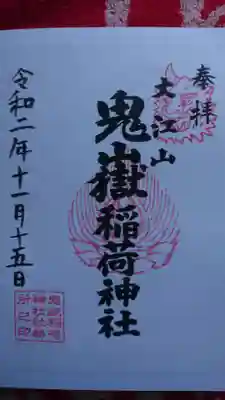 奉拝
大江山
鬼嶽稲荷神社
令和二年十一月十五日